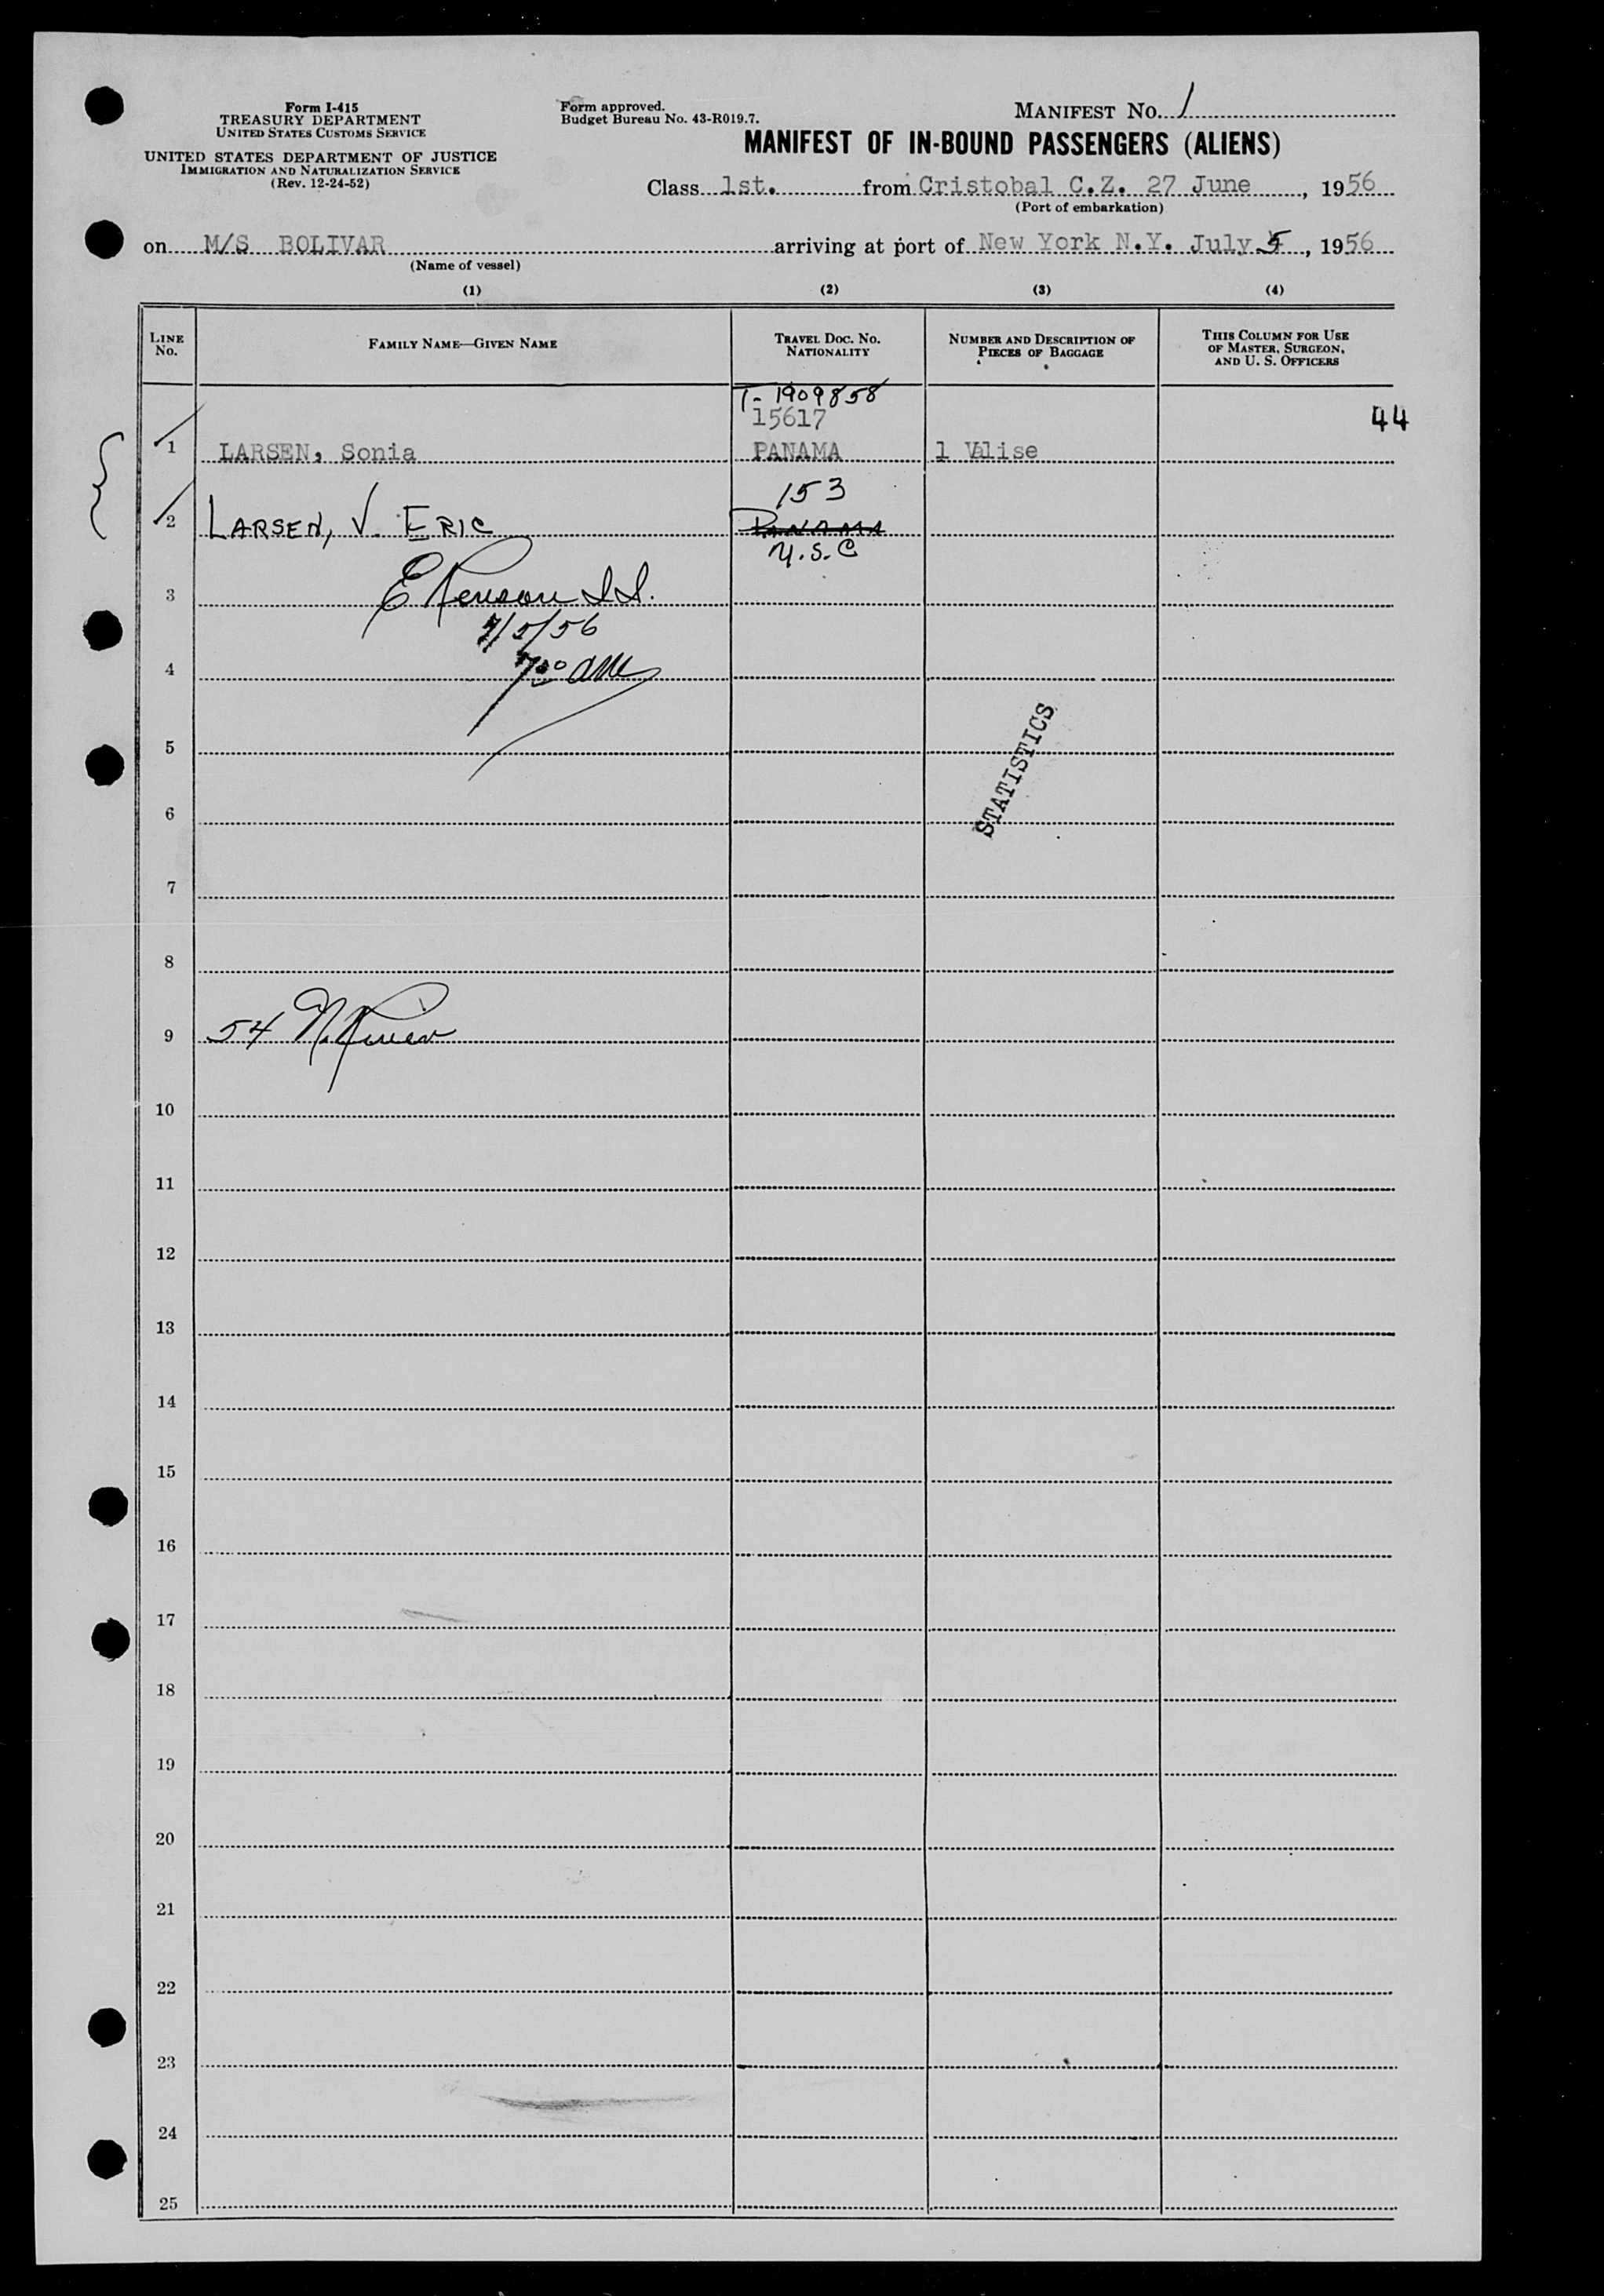 Form I-415
TREASURY DEPARTMENT
UNITED STATES CUSTOMS SERVICE
UNITED STATES DEPARTMENT OF JUSTICE
IMMIGRATION AND NATURALIZATION SERVICE
(Rev. 12-24-52)
Form approved.
Budget Bureau No. 43-R019.7.
MANIFEST NO. 1
MANIFEST OF IN-BOUND PASSENGERS (ALIENS)
Class 1st. from Cristobal C.Z. 27 June, 1956
(Port of embarkation)
on M/S BOLIVAR arriving at port of New York N.Y. July 5, 1956
(Name of vessel)
(1) (2) (3) (4)
LINE No.
FAMILY NAME—GIVEN NAME
TRAVEL DOC. NO. NATIONALITY
NUMBER AND DESCRIPTION OF PIECES OF BAGGAGE
THIS COLUMN FOR USE OF MASTER, SURGEON, AND U. S. OFFICERS
T-1909858
15617
44
1 LARSEN, Sonia PANAMA 1 Valise
153
2 LARSEN, V. ERIC PANAMA
U.S.C
3
7/5/56
4 7:00 AM
STATISTICS
5
6
7
8
9 54 N. River
10
11
12
13
14
15
16
17
18
19
20
21
22
23
24
25